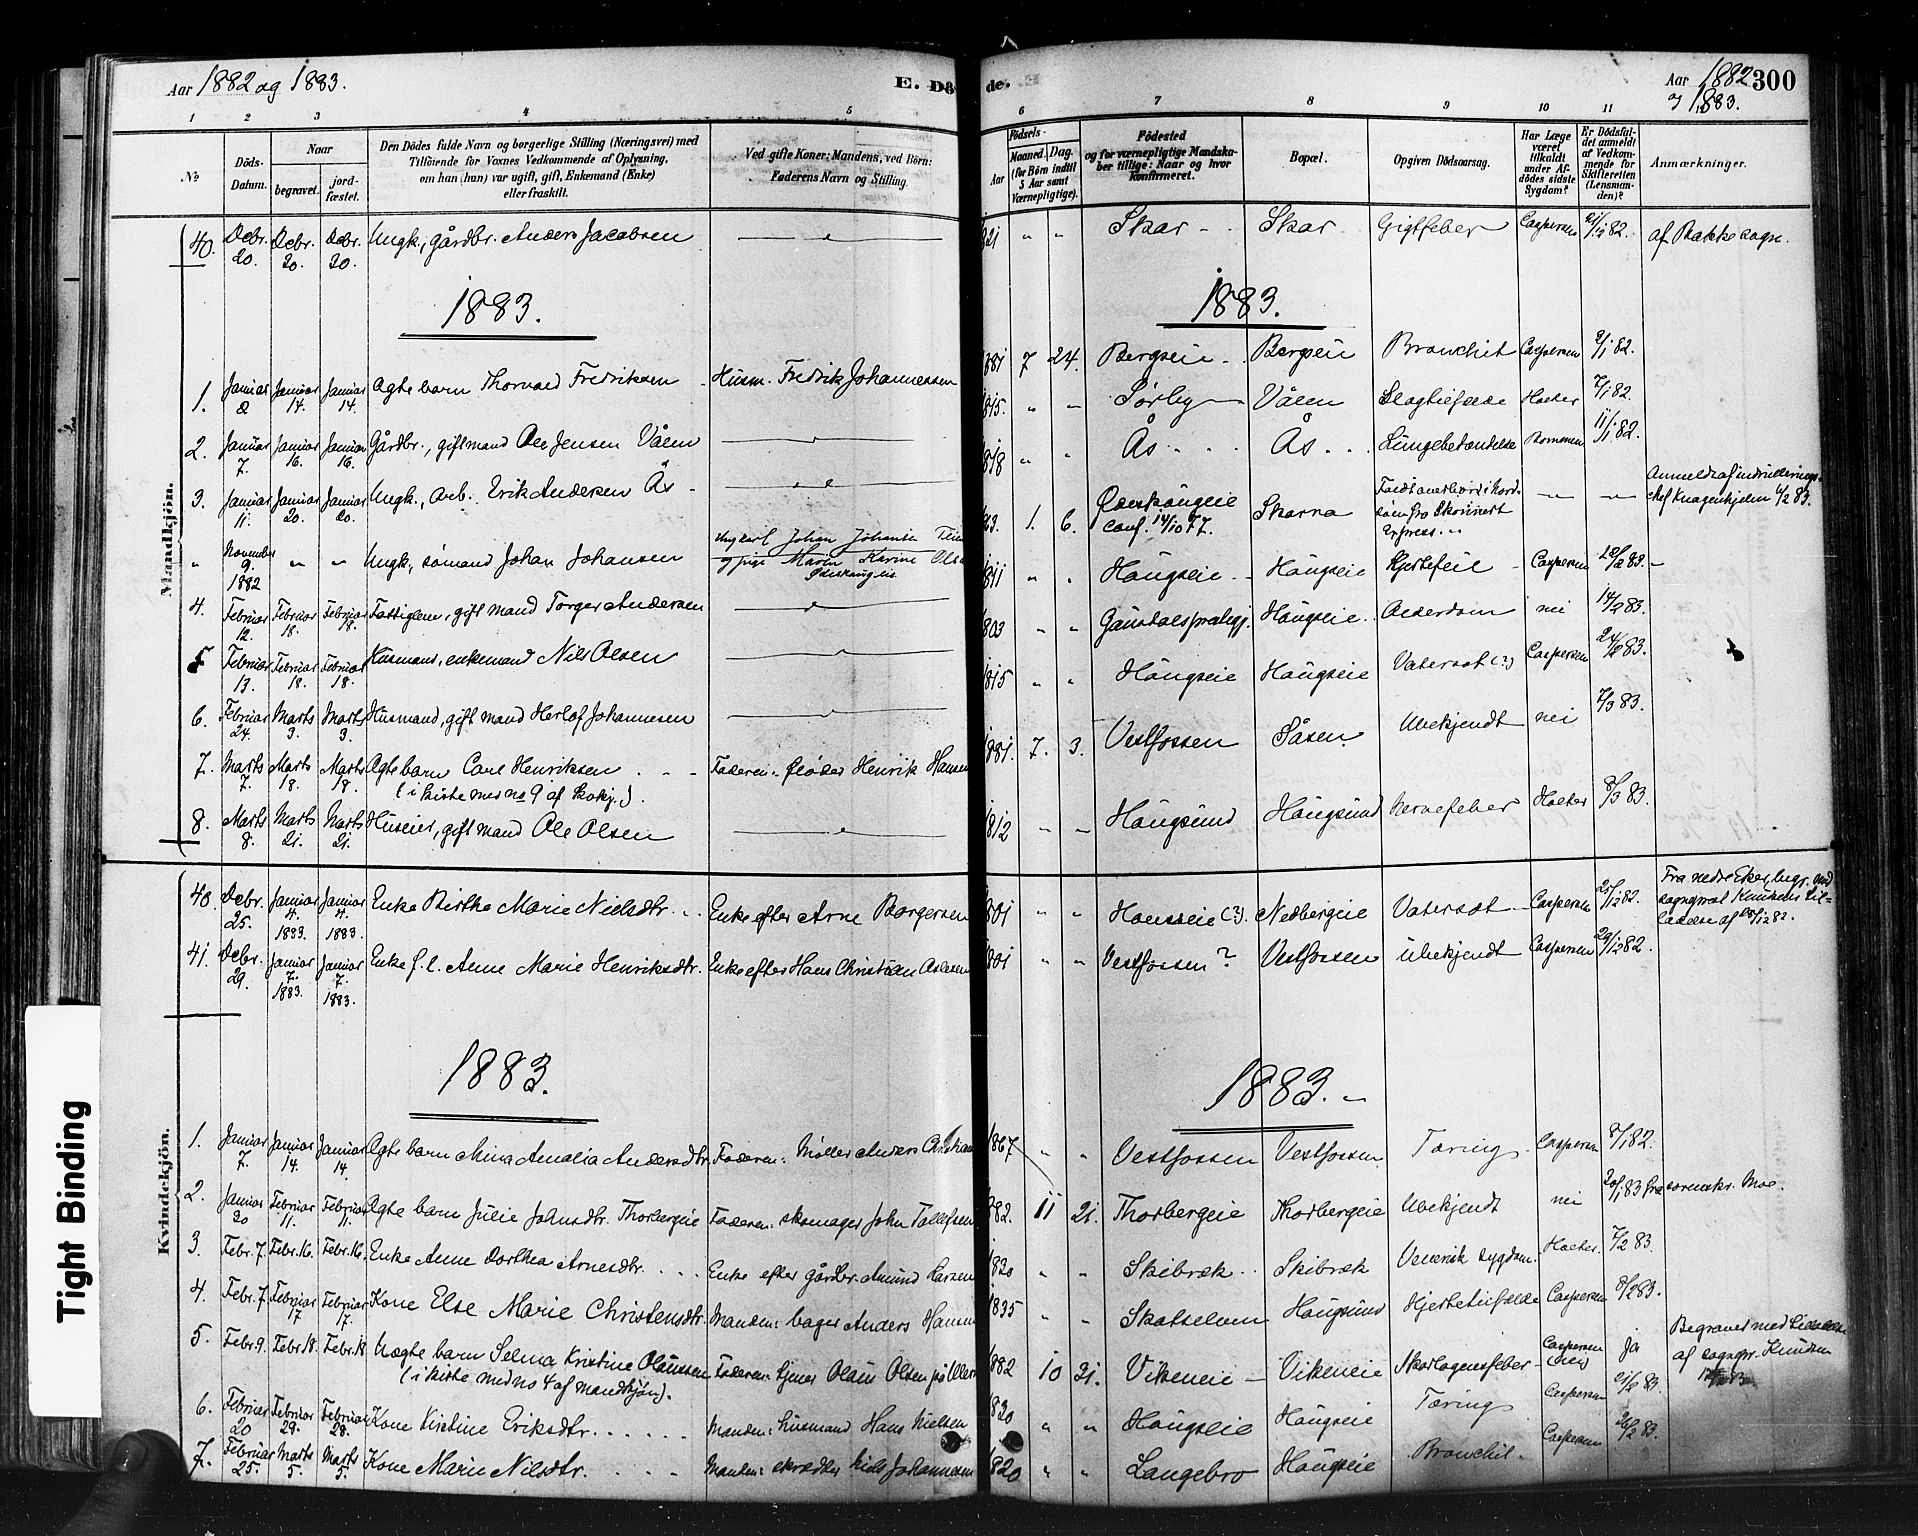 Aar 1882 og 1883.
E. Dö
de.
Aar 1882 300
1883.
1 2 3 4 5 6 7 8 9 10 11
No
Döds-Datum.
Naar
begravet.
jord-fæstet.
Den Dödes fulde Navn og borgerlige Stilling (Næringsvei) med
Tilföiende for Voxnes Vedkommende af Oplysning,
om han (hun) var ugift, gift, Enkemand (Enke)
eller fraskilt.
Ved gifte Koner: Mandens, ved Börn:
Faderens Navn og Stilling.
Födsels-
Aar
Maaned. Dag.
(for Börn indtil
5 Aar samt
Værnepligtige).
Födested
og for værnepligtige Mandska-
ber tillige: Naar og hvor
konfirmeret.
Bopæl.
Opgiven Dödsaarsag.
Har Læge
været
tilkaldt
under Af-
dödes sidste
Sygdom?
Er Dödsfal-
det anmeldt
af Vedkom-
mende for
Skifteretten
(Lensman-
den)?
Anmærkninger.
Mandkjön.
40. Debr. 20. Debr. 30. Debr. 30. Ungk., gårdbr. Anders Jacobsen 821 " " Skar Skar Gigtfeber Caspersen 21/12 82. af Bakke sogn.
1883. 1883.
1. Januar 2 Januar 14. Januar 14. Ægte barn Thorvald Fredriksen Husm. Fredrik Johannessen 881 7 24. Bergseie Bergseie Bronchit Caspersen 2/1 82.
2. Januar 7. Januar 16. Januar 16. Gårdbr., gift mand Ole Jensen Vålen 1815. " " Sørby Vålen Slagtilfælde Holter 7/1 82.
3. Januar 11. Januar 20. Januar 20. Ungk., arb. Erik Andersen Ås 1818 " " Ås Ås Lungebetændelse 11/1 82.
" November 9. 1882 " " Ungk., sømand Johan Johansen Ungkarl Johan Johansen og pige Maren Karine 1. 6. Conf. 14/10 77. Skarra Express.
4. Februar 12. Februar 18. Februar 18. Fattiglem, gift mand Torger Andersen 1811 " " Haugseie Haugseie Hjertefeil Caspersen 20/2 83.
5 Februar 13. Februar 18. Februar 18. Husmand, enkemand Nils Olsen 1803 " " Haugseie Alderdom nei 14/2 83.
6. Februar 24. Marts 3. Marts 3. Husmand, gift mand Herlof Johannesen 1815 " " Haugseie Haugseie Vatersot (?) Caspersen 24/2 83.
7. Marts 7. Marts 18. Marts 18. Ægte barn Carl Henriksen Faderen: fløder Henrik Hansen 1881. 7. 3. Vestfossen Såsen Ubekjendt nei 7/3 83.
(i kiste med no 9 af kvkj.).
8. Marts 8. Marts 21. Marts 21. Huseier, gift mand Ole Olsen 1812 " " Haugsund Haugsund Nervefeber Holter 8/3 83.
Kvindekjön.
40. Debr. 25. Januar 4. 1883. Januar 4. 1883. Enke Birthe Marie Nielsdtr. Enke efter Arne Borgersen 1801 " " (?) Nedbergeie Vatersot Caspersen 25/12 82. Fra nedre Eker, med
41. Debr. 29. Januar 7. 1883. Januar 7. 1883. Enke f. l. Anne Marie Henriksdtr. Enke efter Hans Christian 1801 " " Vestfossen? Vestfossen ubekjendt Caspersen 29/12 82.
1883. 1883.
1. Januar 7. Januar 14. Januar 14. Ægte barn Mina Amalia Andersdtr. Faderen: Møller Anders Christian 1867 " " Vestfossen Vestfossen Tæring Caspersen 8/1 82.
2. Januar 20 Februar 11. Februar 11. Ægte barn Julie Johnsdtr. Thorbergeie Faderen: skomager John Tollefsen 882. 11 21. Thorbergeie Thorbergeie Ubekjendt nei 20/1 83 Moe.
3. Febr. 7 Febr. 16. Febr. 16. Enke Anne Dorthea Arnesdtr. Enke efter gårdbr. Amund Larsen 1820 " " Skibræk Skibræk Venerisk sygdom. Holter. 7/2 83.
4. Febr. 7 Februar 17 Februar 17. Kone Else Marie Christensdtr. Manden: bager Anders Hansen 1835 " " Haugsund Hjertetilfælde Caspersen 8/2 83.
5. Febr. 9. Febr. 18. Febr. 18 Uægte barn Selma Kristine Olaussen Faderen: tjener Olaus Olsen 1882 10 31. Vikeneie Vikeneie Skarlagensfeber Caspersen (nei) Ja Begravet med tilladelse
(i kiste med no 4 af mandkjøn). af sognepr. Knudsen
6. Februar 20 Februar 29. Februar 28. Kone Kirstine Eriksdtr. Manden: husmand Hans Nielsen 1830 " " Haugseie Haugseie Tæring Caspersen 21/2 83.
7. Februar 25. Marts 5. Marts 5. Kone Marie Nilsdtr. Manden: skrædder Niels Johannesen 1820 " " Langebro Haugseie Bronchit. Caspersen 26/2 83.
Tight Binding